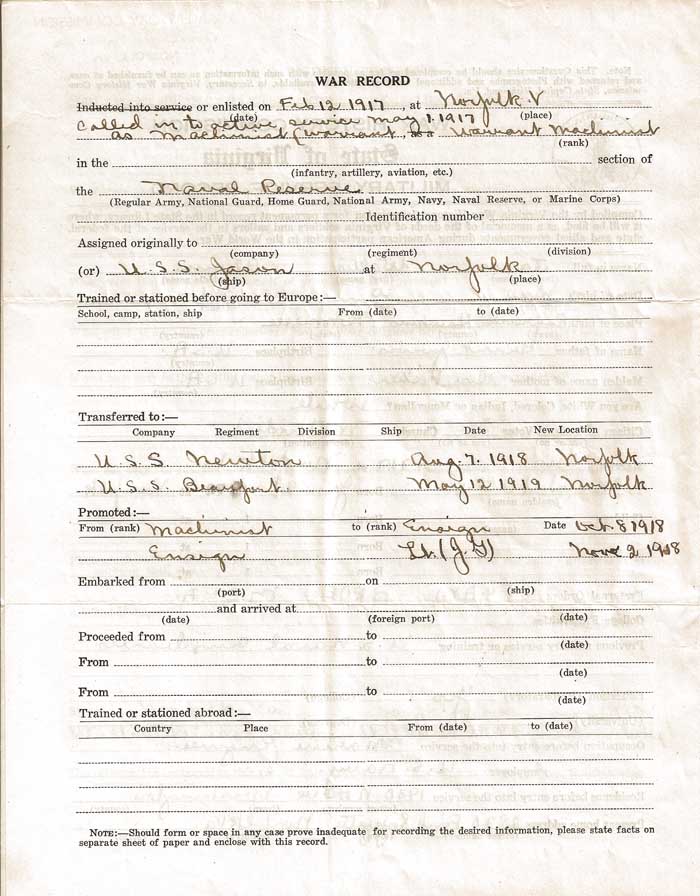 WAR RECORD
Inducted into service or enlisted on Feb 12 1917, at Norfolk V
(date) (place)
Called in to active service May 1. 1917
as Machinist (Warrant, Warrant Machinist
(rank)
in the section of
(infantry, artillery, aviation, etc.)
the Naval Reserve
(Regular Army, National Guard, Home Guard, National Army, Navy, Naval Reserve, or Marine Corps)
Identification number
Assigned originally to
(company) (regiment) (division)
(or) U.S.S. Jason at Norfolk
(ship) (place)
Trained or stationed before going to Europe:—
School, camp, station, ship From (date) to (date)
Transferred to:—
Company Regiment Division Ship Date New Location
U.S.S. Newton Aug. 7. 1918 Norfolk
U.S.S. Beaufort. May 12 1919 Norfolk
Promoted:—
From (rank) Machinist to (rank) Ensign Date Oct. 8 1918
Ensign Lt. (J.G) Nov 2 1918
Embarked from on
(port) (ship)
and arrived at
(date) (foreign port) (date)
Proceeded from to
(date)
From to
(date)
From to
(date)
Trained or stationed abroad:—
Country Place From (date) to (date)
NOTE:—Should form or space in any case prove inadequate for recording the desired information, please state facts on
separate sheet of paper and enclose with this record.